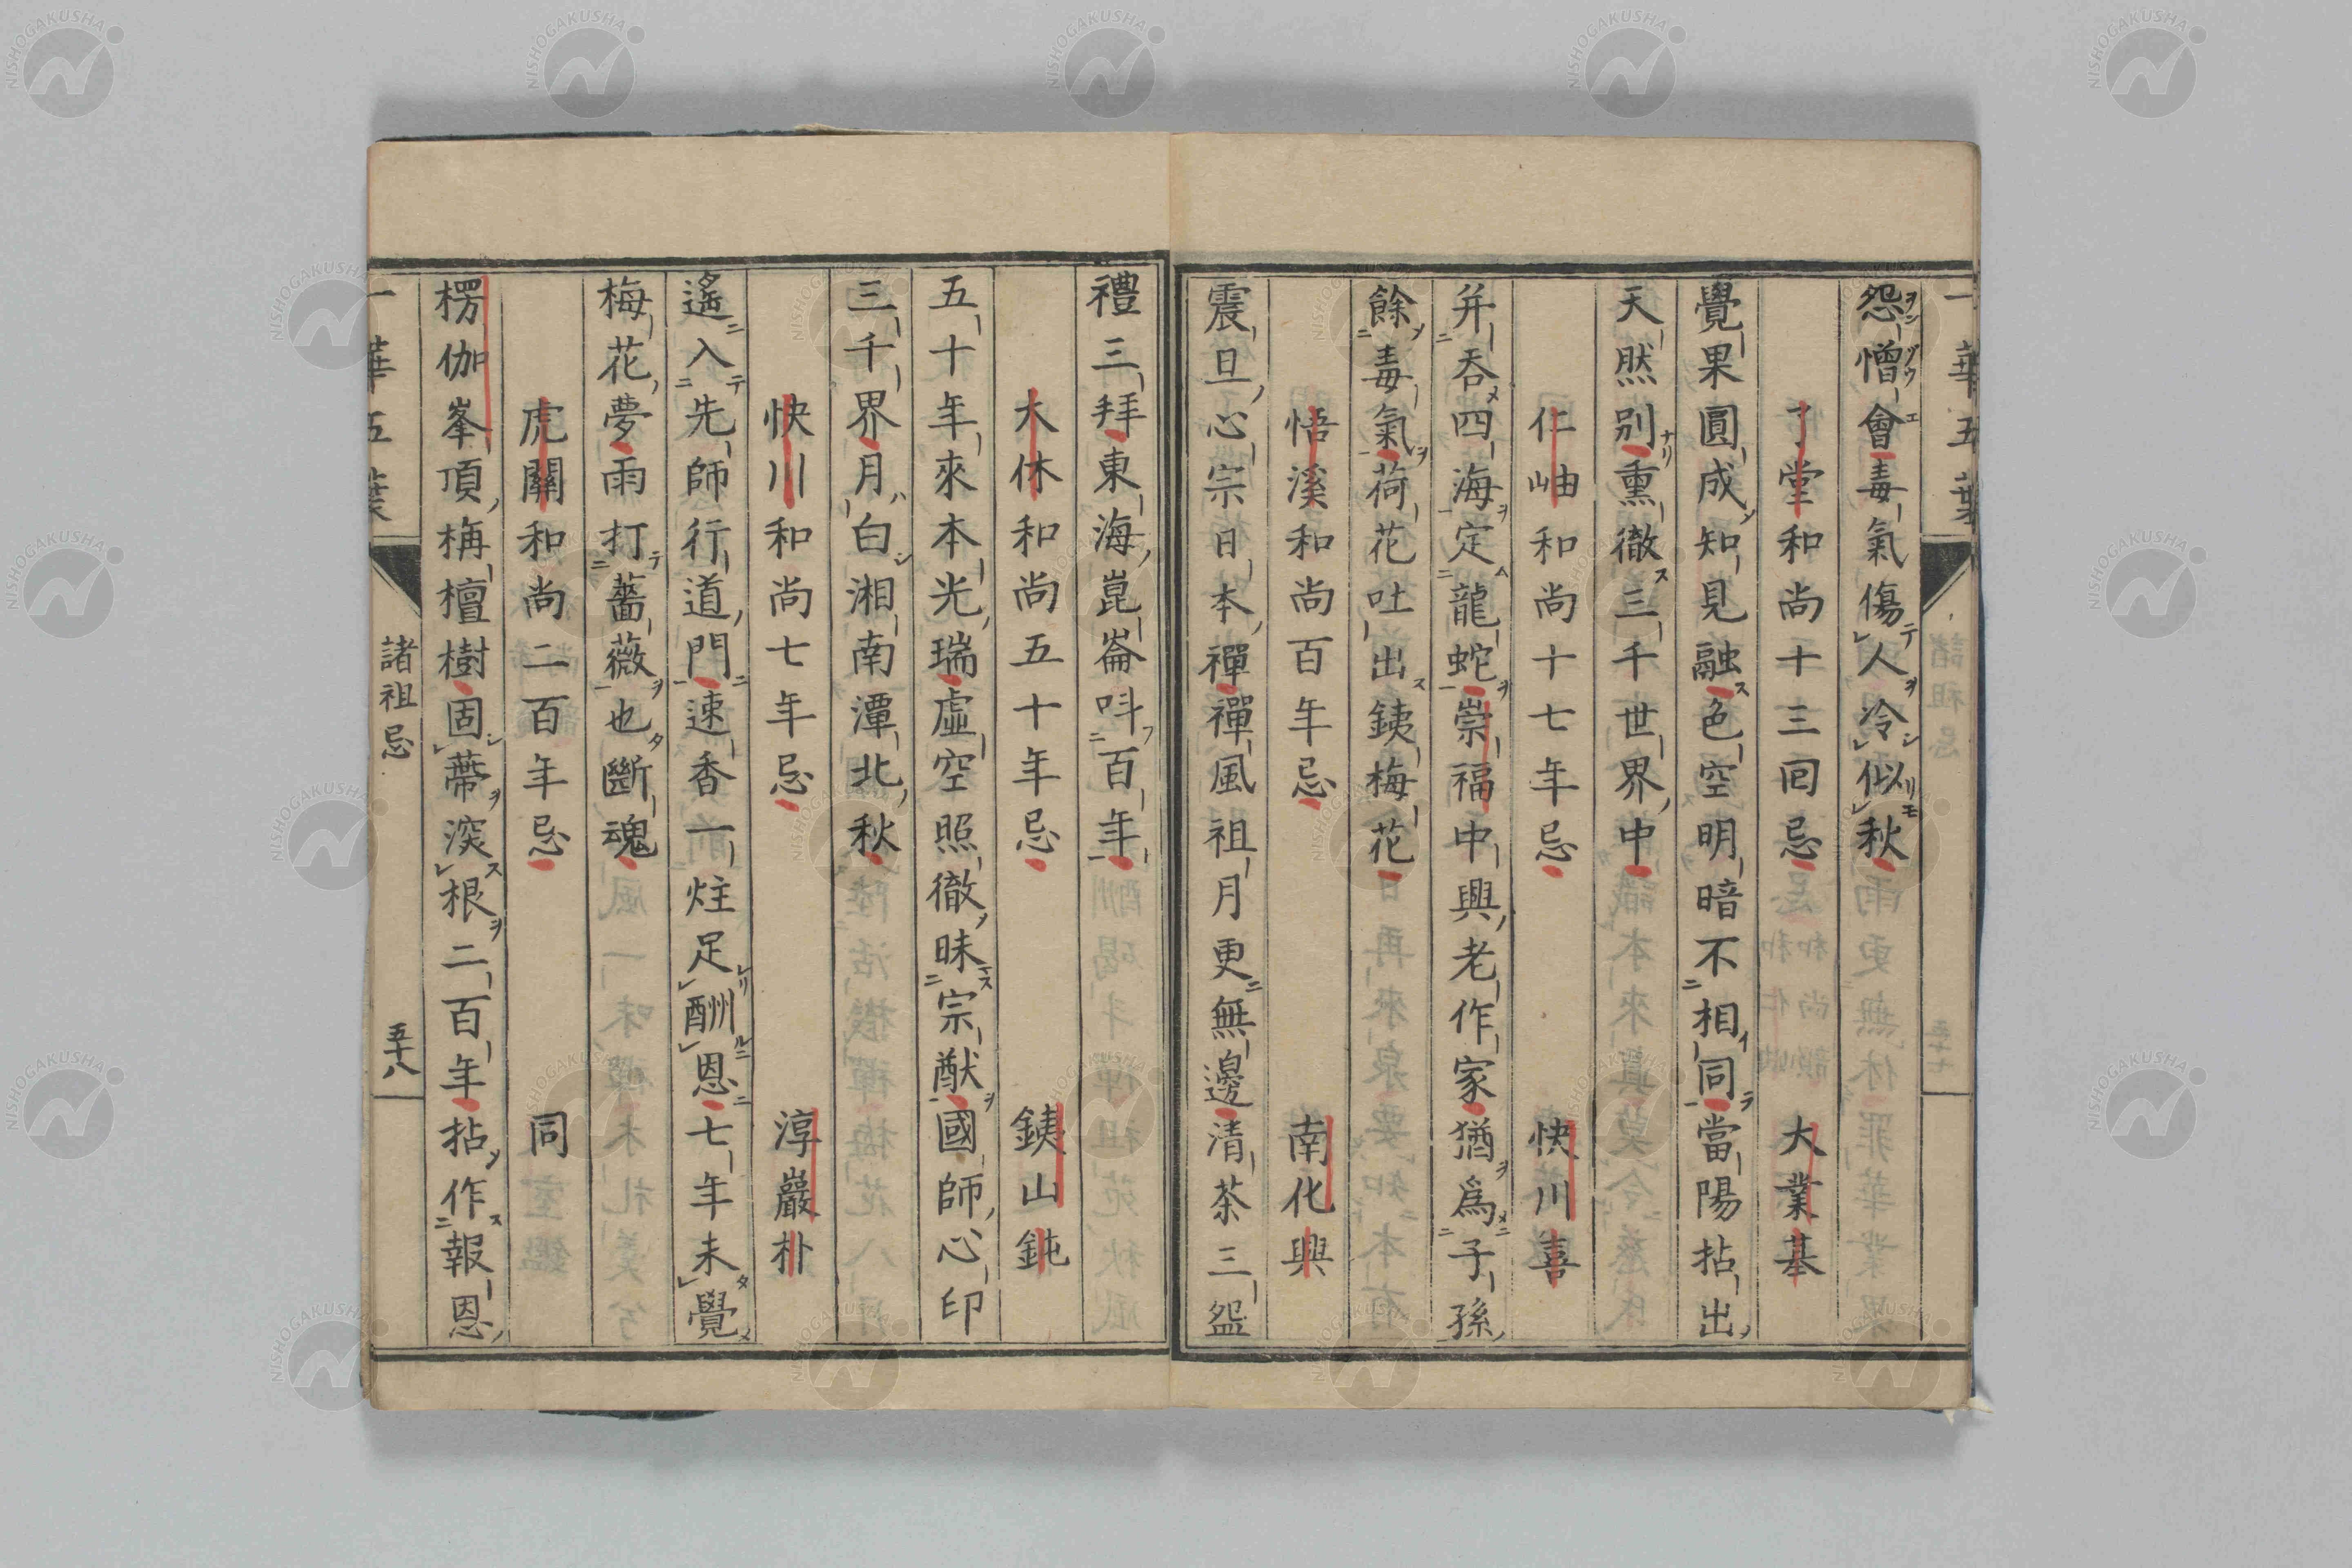 一華五葉
怨憎會毒氣傷人冷似秋
了堂和尚十三回忌 大業基
覺果圓成知見融色空明暗不相同當陽拈出
天然別熏徹三千世界中
仁岫和尚十七年忌 快川喜
并吞四海定龍蛇崇福中興老作家猶爲子孫
餘毒氣荷花吐出銕梅花
悟溪和尚百年忌 南化興
震旦心宗日本禪禪風祖月更無邊清茶三盌
禮三拜東海崑崙呌百年
大休和尚五十年忌 銕山鈍
五十年來本光瑞虛空照徹昧宗猷國師心印
三千界月白湘南潭北秋
快川和尚七年忌 淳巖朴
遙入先師行道門速香一炷足酬恩七年未覺
梅花夢雨打薔薇也斷魂
虎關和尚二百年忌 同
楞伽峯頂栴檀樹固蔕深根二百年拈作報恩
一華五葉 諸祖忌 五十八
NISHOGAKUSHA